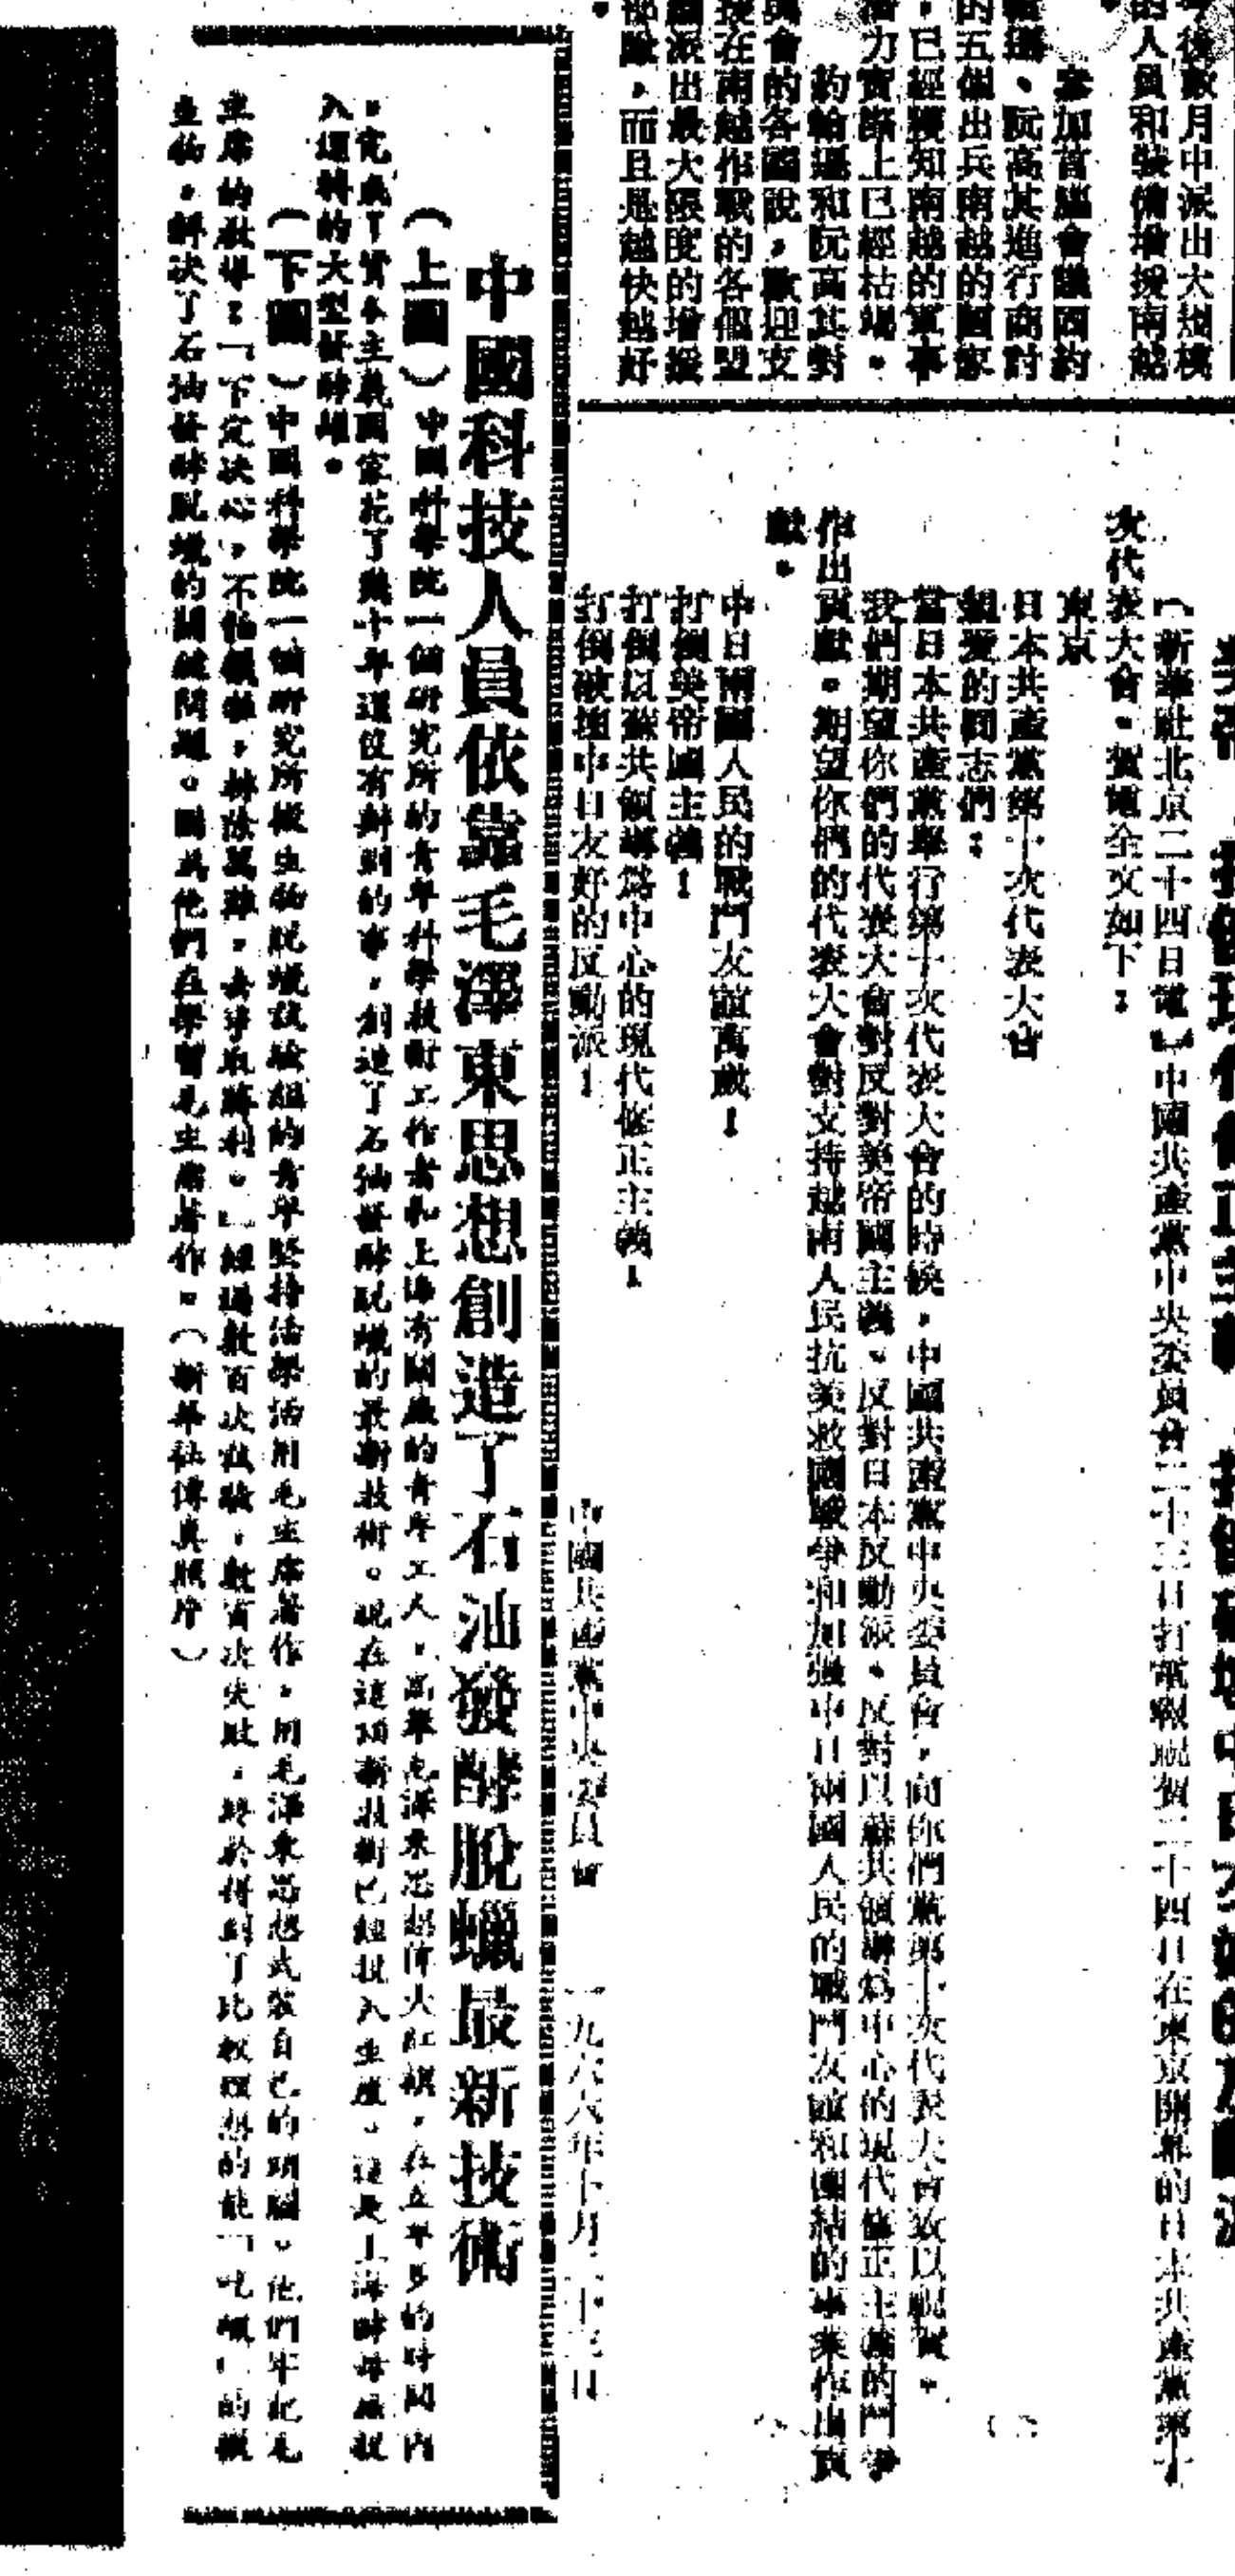 今後數月中派出大規模
的人員和裝備增援南越
。
參加首腦會議西約
翰遜、阮高其進行商討
的五個出兵南越的國家
，已經獲知南越的軍事
潛力實際上已經枯竭。
約翰遜和阮高其對
與會的各國說，歡迎支
援在南越作戰的各個盟
國派出最大限度的增援
部隊，而且是越快越好
。
（新華社北京二十四日電）中國共產黨中央委員會二十三日打電報祝賀二十四日在東京開幕的日本共產黨第十
次代表大會。賀電全文如下：
東京
日本共產黨第十次代表大會
親愛的同志們：
當日本共產黨舉行第十次代表大會的時候，中國共產黨中央委員會，向你們黨第十次代表大會致以祝賀。
我們期望你們的代表大會對反對美帝國主義、反對日本反動派、反對以蘇共領導爲中心的現代修正主義的鬥爭
作出貢獻。期望你們的代表大會對支持越南人民抗美救國戰爭和加強中日兩國人民的戰鬥友誼和團結的事業作出貢
獻。
中日兩國人民的戰鬥友誼萬歲！
打倒美帝國主義！
打倒以蘇共領導爲中心的現代修正主義！
打倒破壞中日友好的反動派！
中國共產黨中央委員會　一九六六年十月二十三日
中國科技人員依靠毛澤東思想創造了石油發酵脫蠟最新技術
（上圖）中國科學院一個研究所的青年科學技術工作者和上海有關廠的青年工人，高舉毛澤東思想偉大紅旗，在立年多的時間內
，完成了資本主義國家花了幾十年還沒有辦到的事，創造了石油發酵脫蠟的最新技術。現在這項新技術已經投入生產。這是上海酵母廠投
入運轉的大型發酵罐。
（下圖）中國科學院一個研究所微生物脫蠟試驗組的青年堅持活學活用毛主席著作，用毛澤東思想武裝自己的頭腦。他們牢記毛
主席的敎導：「下定決心，不怕犧牲，排除萬難，去爭取勝利。」經過數百次試驗，數百次失敗，終於得到了比較理想的能「吃蠟」的微
生物，解決了石油發酵脫蠟的關鍵問題。圖爲他們在學習毛主席著作。（新華社傳眞照片）